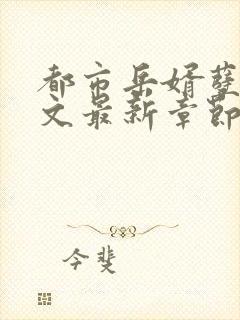 都市岳婿孽
文最新章節
今斐